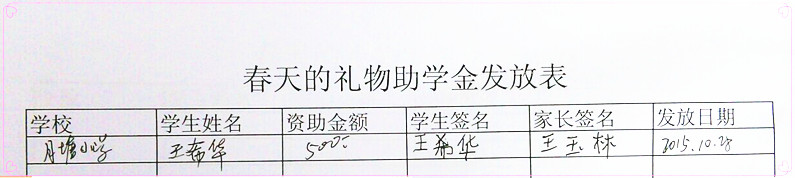 春天的礼物助学金发放表
学校 学生姓名 资助金额 学生签名 家长签名 发放日期
月塘小学 王希华 500元 王希华 王玉林 2015.10.28